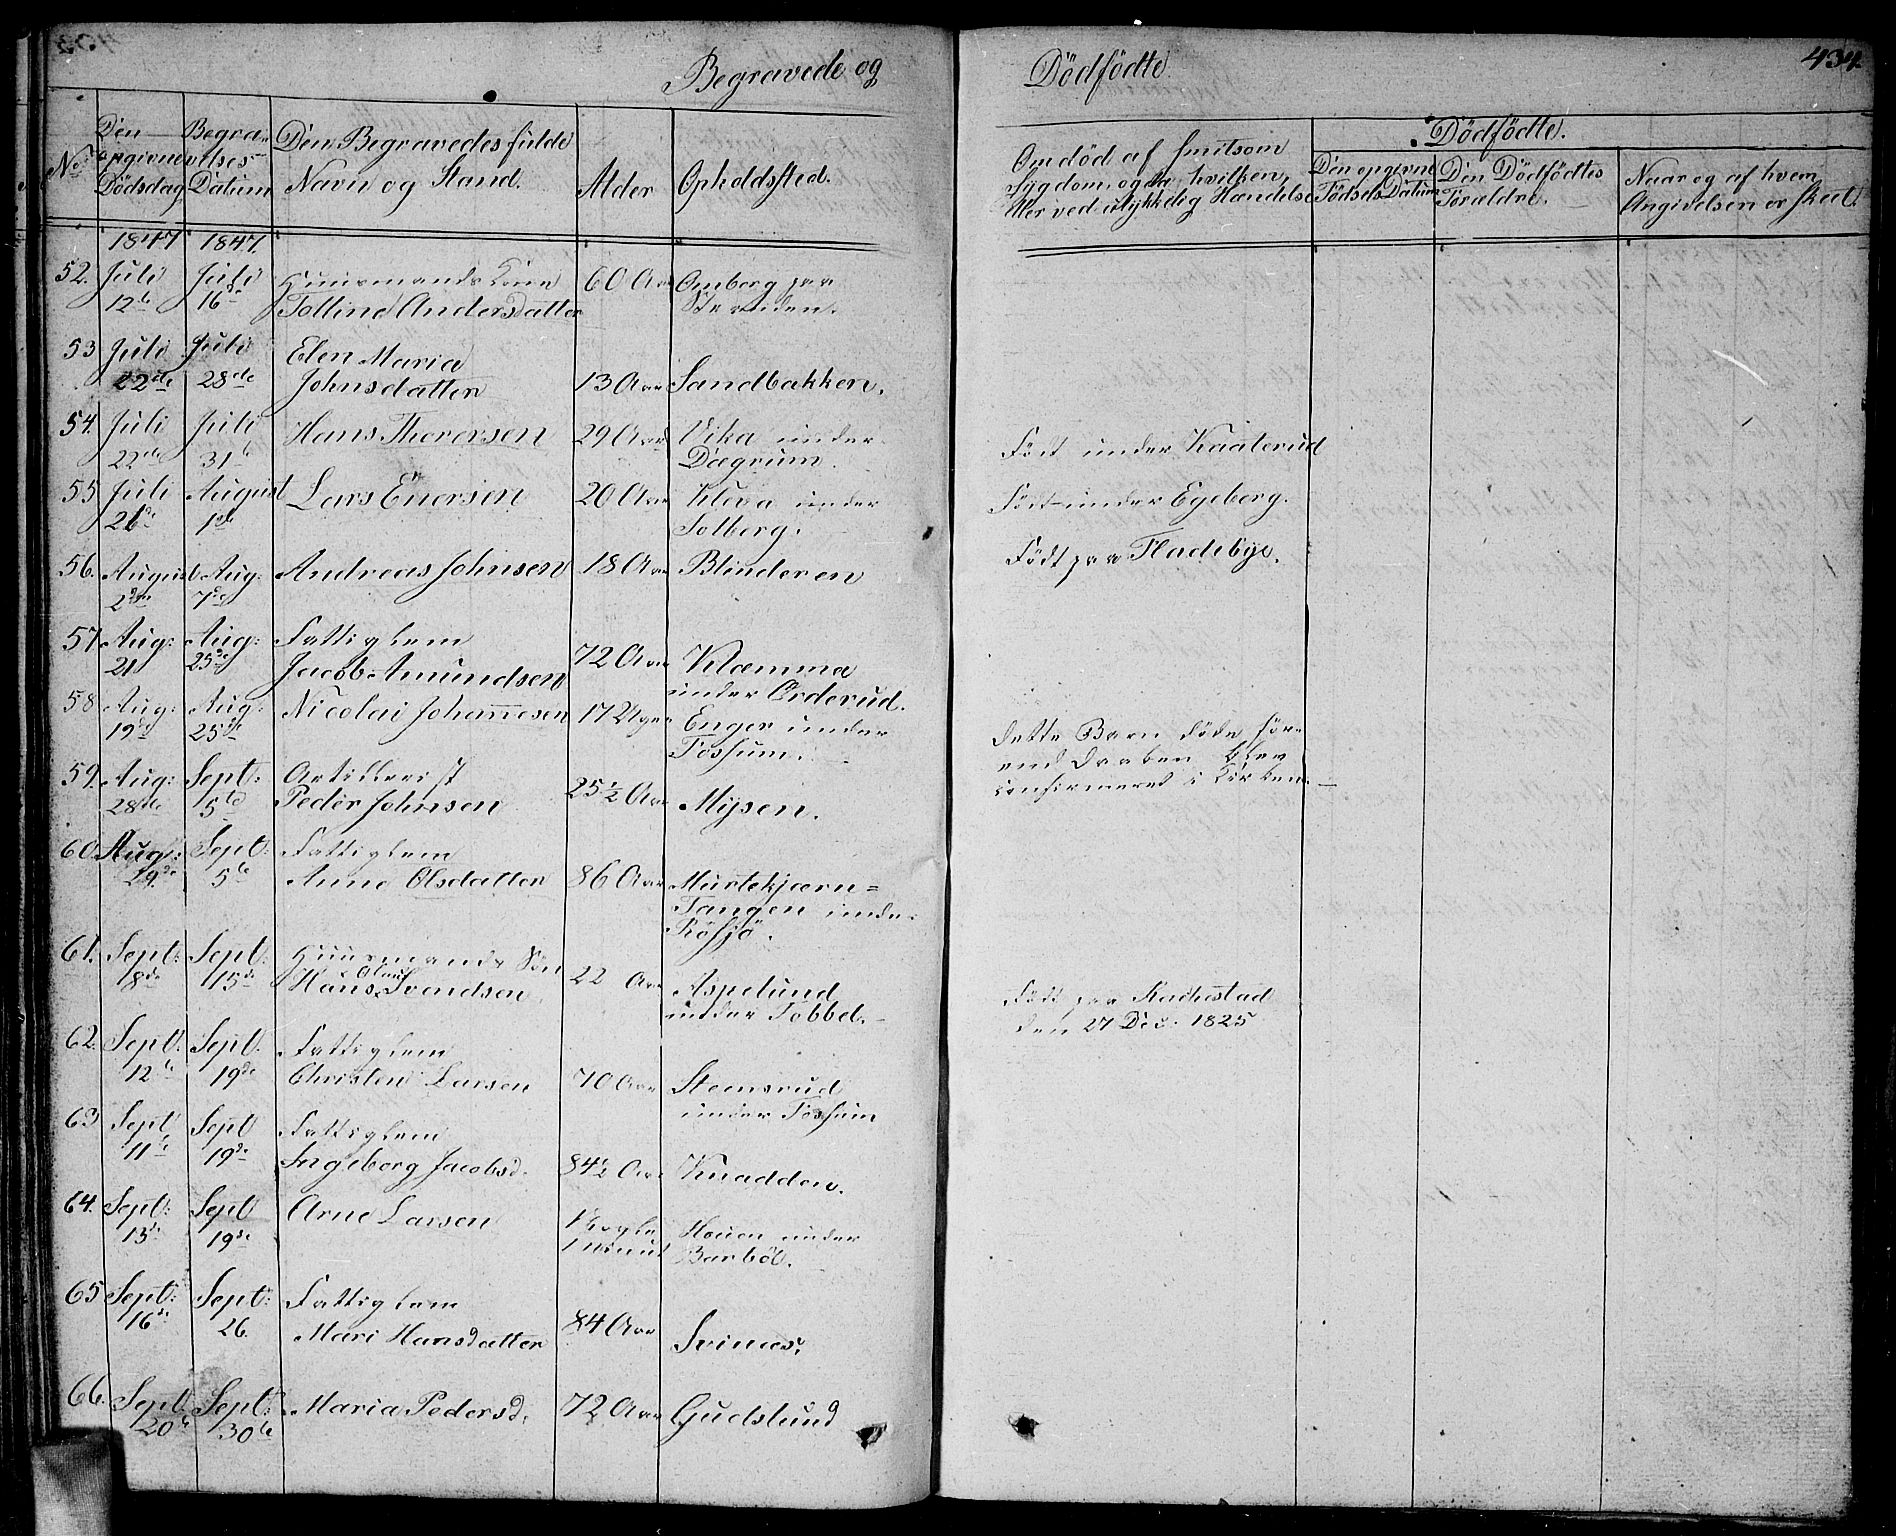 Begravede og Dödfödte. 434.
No. Den opgivne Dödsdag Begravelses Datum Den Begravedes fulde Navn og Stand. Alder Opholdssted. Om död af smitsom Sygdom, og da hvilken, eller ved ulykkelig Hændelse Dödfödte. Den opgivne Födsels Datum Den Dödfödtes Forældre. Naar og af hvem Angivelsen er skeet.
1847 1847.
52. Juli Juli Huusmands Kone 60 Aar Omberg paa
12te 16de Andersdatter
53 Juli Juli Elen Maria
22de 28de Johnsdatter 13 Aar Sandbakken.
54. Juli Juli Hans Thorersen 29 Aar Vika under Födt under Kaaterud
22de 31te Dægrum.
55 Juli August Lars Enersen 20 Aar Kleva under Födt under Egeberg.
26de 1ste Solberg.
56. August Aug: Andreas Johnsen 18 Aar Blinderen Födt paa Fladebye.
2den 7de
57. Aug: Aug: Fattiglem
21 25de Jacob Amundsen 72 Aar Klæmma
under Orderud.
58 Aug: Aug: Nicolai Johannesen 17 Uger Enger under Dette Barn döde för-
19de 25de Fossum. end Daaben blev
confirmeret i Kirken.
59. Aug: Sept: Artillerist
28de 5te Peder Johnsen 25½ Aar Mysen.
60. Aug: Sept: Fattiglem
29de 5te Anne Olsdatter 86 Aar Murtekjærn=
Tangen under
Rösjö.
61. Sept: Sept: Huusmands Sön
8de 15de Hans Olaus Svendsen 22 Aar Aspelund Födt paa Kachestad
under Tobbel. den 27 Dec. 1825
62. Sept. Sept. Fattiglem
12te 19de Christen Larsen 70 Aar Stemsrud
under Fossum
63 Sept Sept Fattiglem
11te 19de Ingeborg Jacobsd. 84½ Aar Knadden.
64. Sept: Sept Arne Larsen
13de 19de 1 Minut Houen under
Barböl.
65 Sept: Sept: Fattiglem
16de 26. Mari Hansdatter 84 Aar Svinæs.
66. Sept. Sept: Maria Pedersd. 72 Aar Gudslund
20de 30te